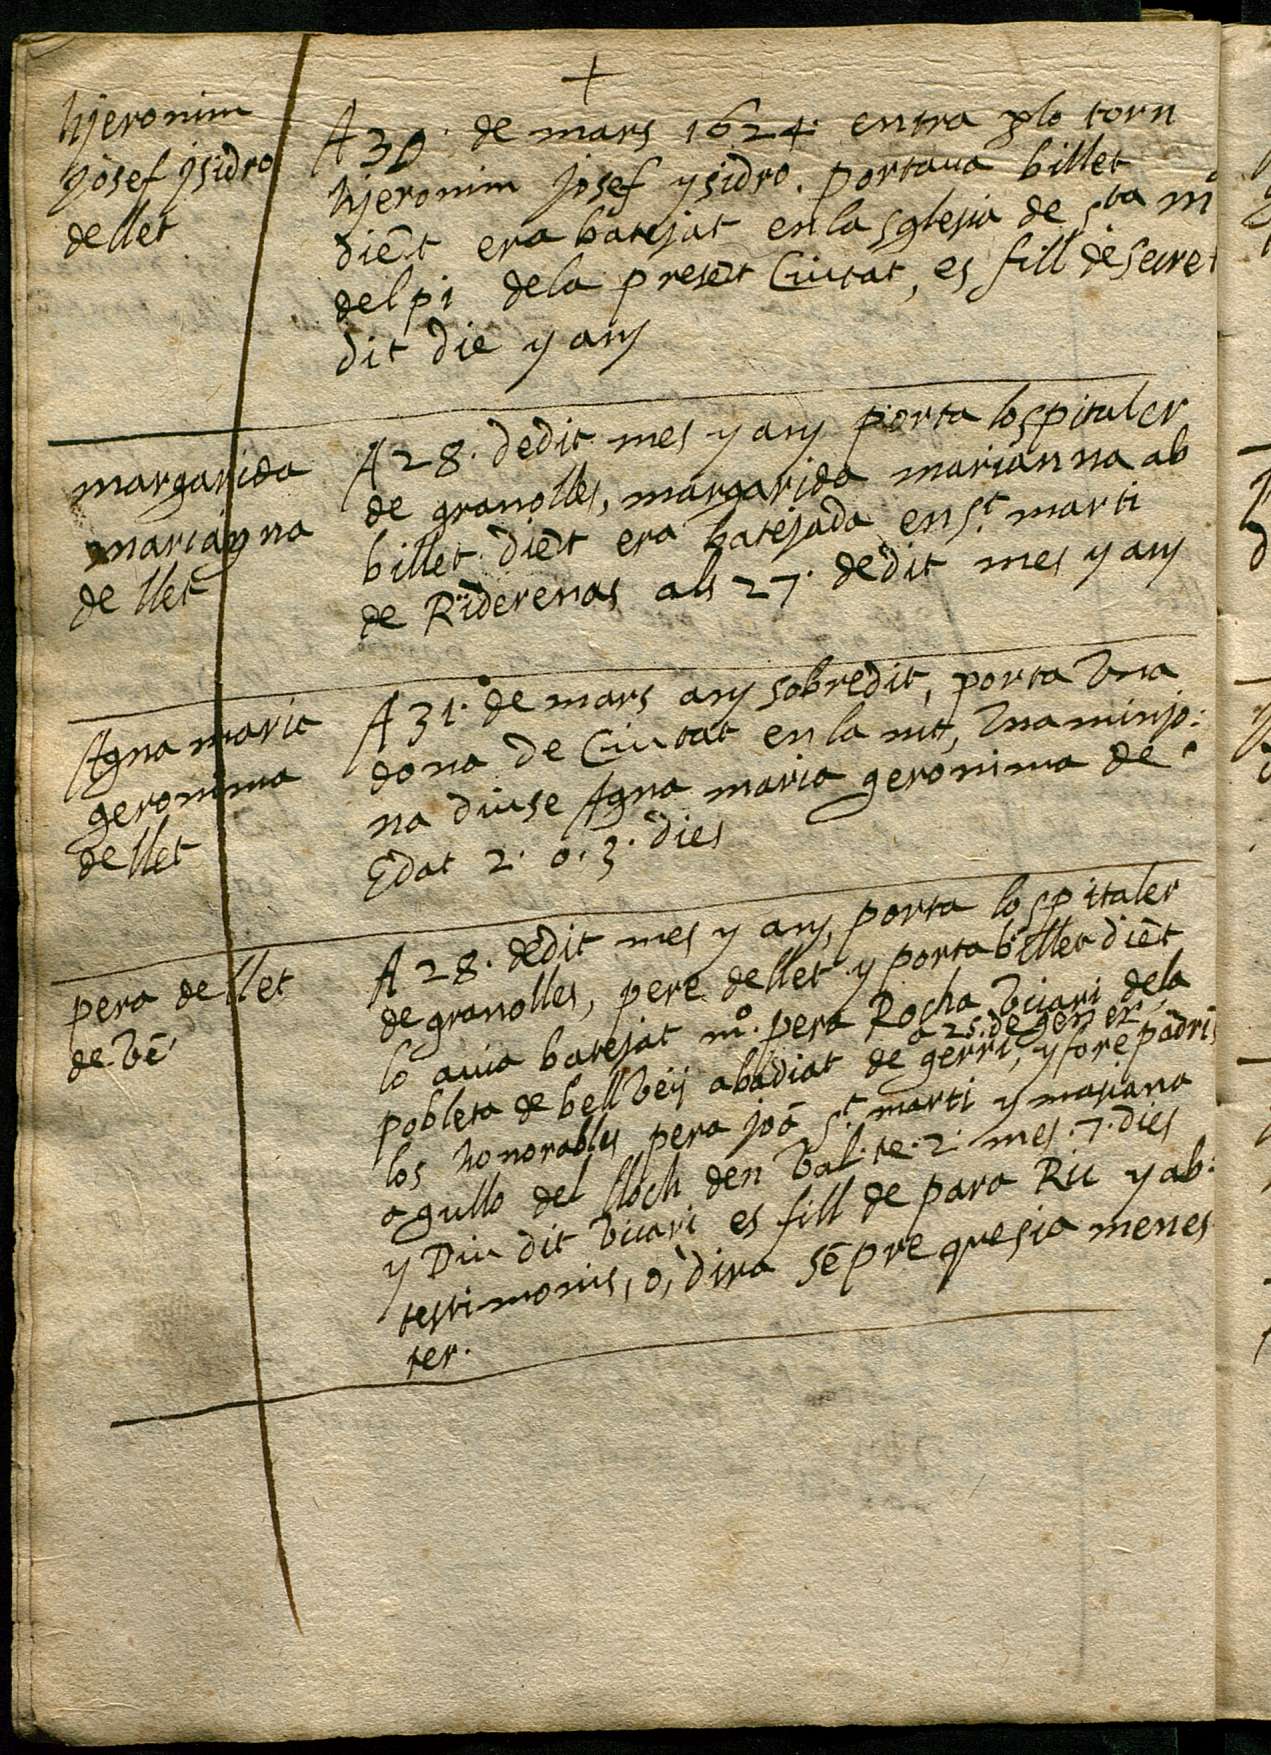 +
hjeronim
josef jsidro
de llet
A 30. de mars 1624. entra plo torn
hjeronim josef ysidro. portaua billet
diẽt era batejat en la sglesia de sta mª
del pi dela presẽt Ciutat, es fill de secret
dit die y any
margarida
marianna
de llet
A 28. dedit mes y any porta lospitaler
de granolles, margarida marianna ab
billet diẽt era batejada en st. marti
de Riderenas als 27. dedit mes y any
Agna maria
geronima
de llet
A 31. de mars any sobredit, porta Vna
dona de Ciutat en la nit, Vna minjo:
na diuse Agna maria geronima de
Edat 2. o. 3. dies
pera de llet
de Vẽ
A 28. dedit mes y any, porta lospitaler
de granolles, pere de llet y porta billet diẽt
lo auia batejat mº. pera Rocha Vicari dela
a 25. de gener
pobleta de bellVey abadiat de gerri, y fore padris
los honorables pera joã st. marti y mariana
agullo del lloch den Val. te. 2. mes. 7. dies
y Diu dit Vicari es fill de para Ric y ab:
testimonis, o, dira sẽpre que sia menes
ter.